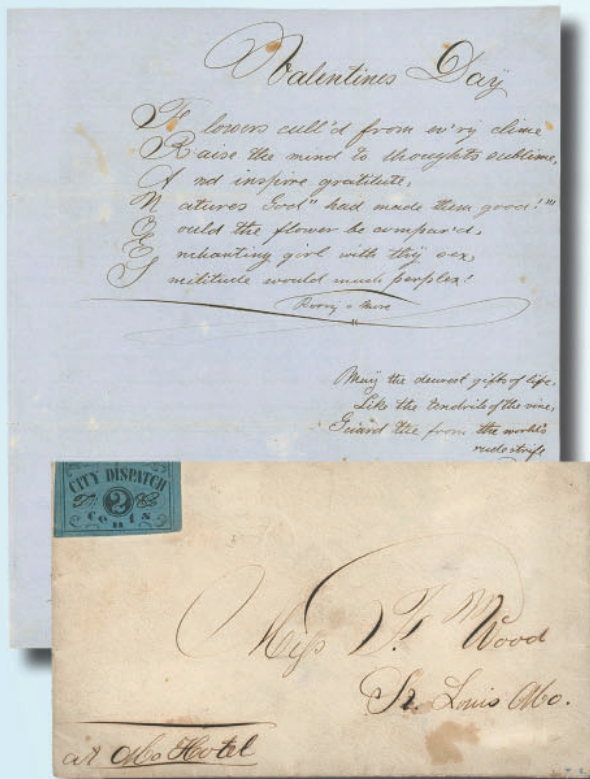 Valentines Day
Flowers cull'd from ev'ry clime
Raise the mind to thoughts sublime,
And inspire gratitute,
Natures God" had made them good!"
Could the flower be compar'd,
Enchanting girl with thy sex,
Similitude would much perplex!
May the dearest gifts of life,
Like the tendrils of the vine,
Guard thee from the world's
rude strife
CITY DISPATCH
2
cents
Miss F M Wood
St. Louis Mo.
at Mo Hotel